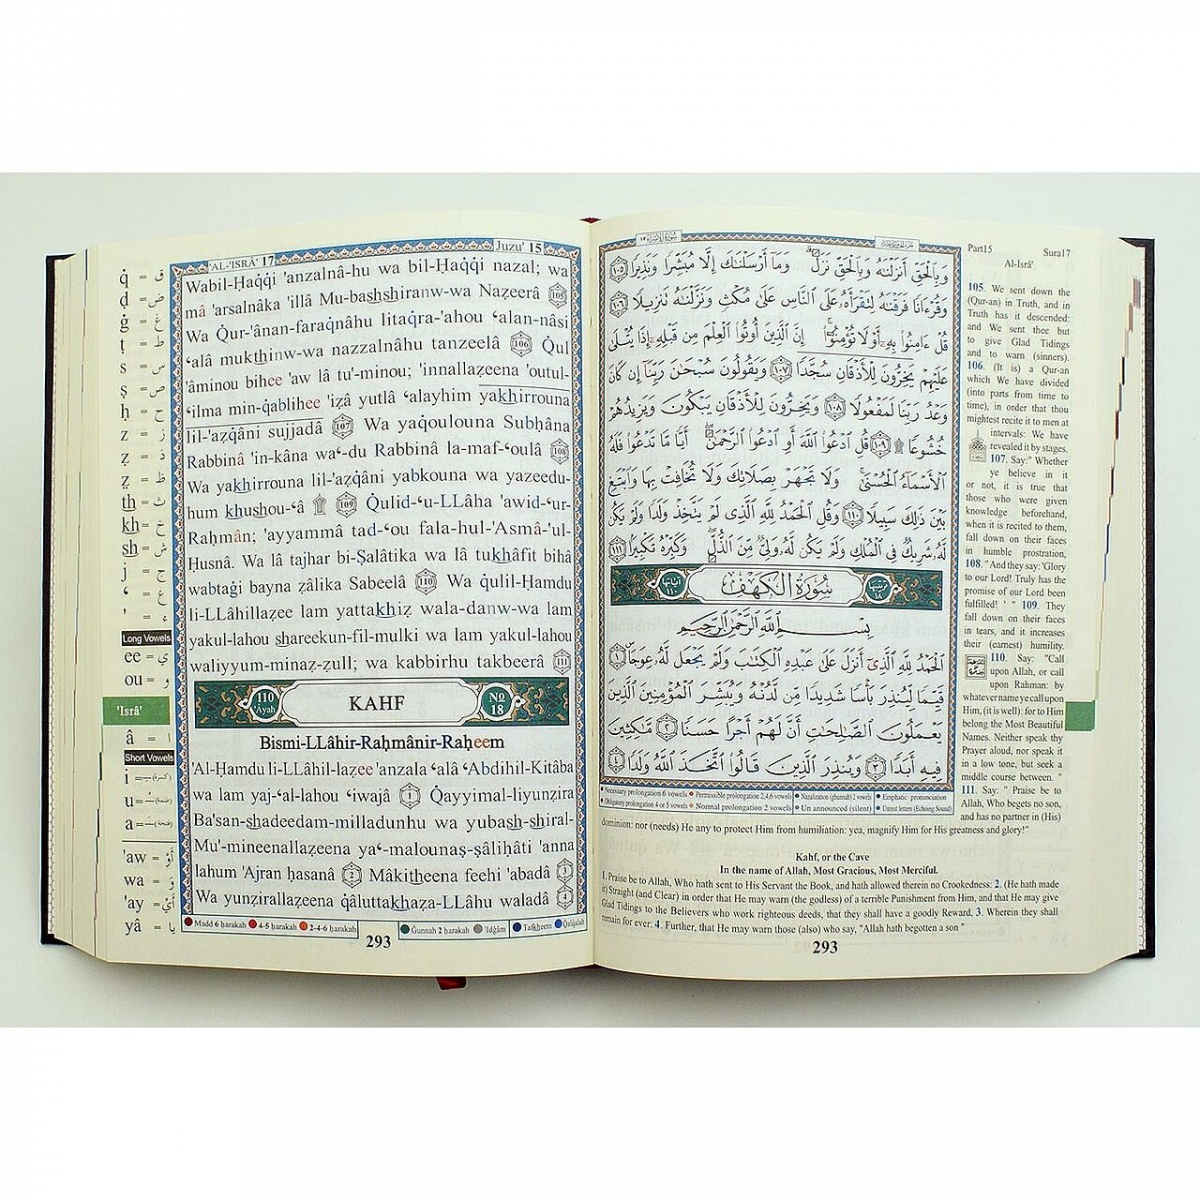 q̇ = ق
ḍ = ض
ġ = غ
ṭ = ط
s = س
ṣ = ص
ḥ = ح
z = ز
ẓ = ظ
th = ث
kh = خ
sh = ش
j = ج
‘ = ع
' = ء
Long Vowels
ee = ي
ou = و
'Isrâ'
â = ا
Short Vowels
i =
u =
a =
'aw = أَوْ
wa = وَ
'ay = أَيْ
yâ = يَا
'AL-'ISRÂ' 17
Juzu' 15
Wabil-Ḥaqqi 'anzalnâ-hu wa bil-Ḥaqqi nazal; wa
mâ 'arsalnâka 'illâ Mu-bashshiranw-wa Nazeerâ 105
Wa Q̇ur-'ânan-faraqnâhu litaqra-'ahou ‘alan-nâsi
‘alâ mukthinw-wa nazzalnâhu tanzeelâ 106 Q̇ul
'âminou bihee 'aw lâ tu'-minou; 'innallaẓeena 'outul-
‘ilma min-q̇ablihee 'iẓâ yutlâ ‘alayhim yakhirrouna
lil-'aẓqâni sujjadâ 107 Wa yaq̇oulouna Subḥâna
Rabbinâ 'in-kâna wa‘-du Rabbinâ la-maf-‘oulâ 108
Wa yakhirrouna lil-'aẓqâni yabkouna wa yazeedu-
hum khushou-‘â 109 Q̇ulid-‘u-LLâha 'awid-‘ur-
Raḥmân; 'ayyammâ tad-‘ou fala-hul-'Asmâ-'ul-
Ḥusnâ. Wa lâ tajhar bi-Ṣalâtika wa lâ tukhâfit bihâ
wabtaġi bayna ẓâlika Sabeelâ 110 Wa qulil-Ḥamdu
li-LLâhillaẓee lam yattakhiẓ wala-danw-wa lam
yakul-lahou shareekun-fil-mulki wa lam yakul-lahou
waliyyum-minaẓ-ẓull; wa kabbirhu takbeerâ 111
110 'Ayah KAHF No 18
Bismi-LLâhir-Raḥmânir-Raḥeem
'Al-Ḥamdu li-LLâhil-laẓee 'anzala ‘alâ ‘Abdihil-Kitâba
wa lam yaj-‘al-lahou ‘iwajâ 1 Q̇ayyimal-liyunẓira
Ba'san-shadeedam-milladunhu wa yubash-shiral-
Mu'-mineenallaẓeena ya‘-malounaṣ-ṣâliḥâti 'anna
lahum 'Ajran ḥasanâ 2 Mâkitheena feehi 'abadâ 3
Wa yunẓirallaẓeena qâluttakhaẓa-LLâhu waladâ 4
Madd 6 ḥarakah 4-5 ḥarakah 2-4-6 ḥarakah Ġunnah 2 ḥarakah 'Idġâm Tafkheem Qalqalah
293
سُورَةُ الإِسْرَاءِ ١٧
وَبِالْحَقِّ أَنزَلْنَاهُ وَبِالْحَقِّ نَزَلَ وَمَا أَرْسَلْنَاكَ إِلَّا مُبَشِّرًا وَنَذِيرًا ١٠٥
وَقُرْءَانًا فَرَقْنَاهُ لِتَقْرَأَهُ عَلَى النَّاسِ عَلَى مُكْثٍ وَنَزَّلْنَاهُ تَنزِيلًا ١٠٦
قُلْ ءَامِنُوا بِهِ أَوْ لَا تُؤْمِنُوا إِنَّ الَّذِينَ أُوتُوا الْعِلْمَ مِن قَبْلِهِ إِذَا يُتْلَى
عَلَيْهِمْ يَخِرُّونَ لِلْأَذْقَانِ سُجَّدًا ١٠٧ وَيَقُولُونَ سُبْحَانَ رَبِّنَا إِن كَانَ
وَعْدُ رَبِّنَا لَمَفْعُولًا ١٠٨ وَيَخِرُّونَ لِلْأَذْقَانِ يَبْكُونَ وَيَزِيدُهُمْ
خُشُوعًا ۩ ١٠٩ قُلِ ادْعُوا اللَّهَ أَوِ ادْعُوا الرَّحْمَٰنَ أَيًّا مَّا تَدْعُوا فَلَهُ
الْأَسْمَاءُ الْحُسْنَىٰ وَلَا تَجْهَرْ بِصَلَاتِكَ وَلَا تُخَافِتْ بِهَا وَابْتَغِ
بَيْنَ ذَٰلِكَ سَبِيلًا ١١٠ وَقُلِ الْحَمْدُ لِلَّهِ الَّذِي لَمْ يَتَّخِذْ وَلَدًا وَلَمْ يَكُن
لَّهُ شَرِيكٌ فِي الْمُلْكِ وَلَمْ يَكُن لَّهُ وَلِيٌّ مِّنَ الذُّلِّ وَكَبِّرْهُ تَكْبِيرًا ١١١
ترتيبها ١٨ سُورَةُ الْكَهْفِ آياتها ١١٠
بِسْمِ اللَّهِ الرَّحْمَٰنِ الرَّحِيمِ
الْحَمْدُ لِلَّهِ الَّذِي أَنزَلَ عَلَى عَبْدِهِ الْكِتَابَ وَلَمْ يَجْعَل لَّهُ عِوَجًا ١
قَيِّمًا لِّيُنذِرَ بَأْسًا شَدِيدًا مِّن لَّدُنْهُ وَيُبَشِّرَ الْمُؤْمِنِينَ الَّذِينَ
يَعْمَلُونَ الصَّالِحَاتِ أَنَّ لَهُمْ أَجْرًا حَسَنًا ٢ مَّاكِثِينَ
فِيهِ أَبَدًا ٣ وَيُنذِرَ الَّذِينَ قَالُوا اتَّخَذَ اللَّهُ وَلَدًا ٤
Necessary prolongation 6 vowels Permissible prolongation 2,4,6 vowels Nazalization (ghunnah) 2 vowels Emphatic pronunciation
Obligatory prolongation 4 or 5 vowels Normal prolongation 2 vowels Un announced (silent) Unrest letters (Echoing Sound)
Part15 Sura17
Al-Isrâ'
105. We sent down the
(Qur-an) in Truth, and in
Truth has it descended:
and We sent thee but
to give Glad Tidings
and to warn (sinners).
106. (It is) a Qur-an
which We have divided
(into parts from time to
time), in order that thou
mightest recite it to men at
intervals: We have
revealed it by stages.
107. Say:" Whether
ye believe in it
or not, it is true that
those who were given
knowledge beforehand,
when it is recited to them,
fall down on their faces
in humble prostration,
108. " And they say: 'Glory
to our Lord! Truly has the
promise of our Lord been
fulfilled! ' " 109. They
fall down on their faces
in tears, and it increases
their (earnest) humility.
110. Say: "Call
upon Allah, or call
upon Rahman: by
whatever name ye call upon
Him, (it is well): for to Him
belong the Most Beautiful
Names. Neither speak thy
Prayer aloud, nor speak it
in a low tone, but seek a
middle course between. "
111. Say: " Praise be to
Allah, Who begets no son,
and has no partner in (His)
dominion: nor (needs) He any to protect Him from humiliation: yea, magnify Him for His greatness and glory!"
Kahf, or the Cave
In the name of Allah, Most Gracious, Most Merciful.
1. Praise be to Allah, Who hath sent to His Servant the Book, and hath allowed therein no Crookedness: 2. (He hath made
it) Straight (and Clear) in order that He may warn (the godless) of a terrible Punishment from Him, and that He may give
Glad Tidings to the Believers who work righteous deeds, that they shall have a goodly Reward, 3. Wherein they shall
remain for ever: 4. Further, that He may warn those (also) who say, "Allah hath begotten a son "
293